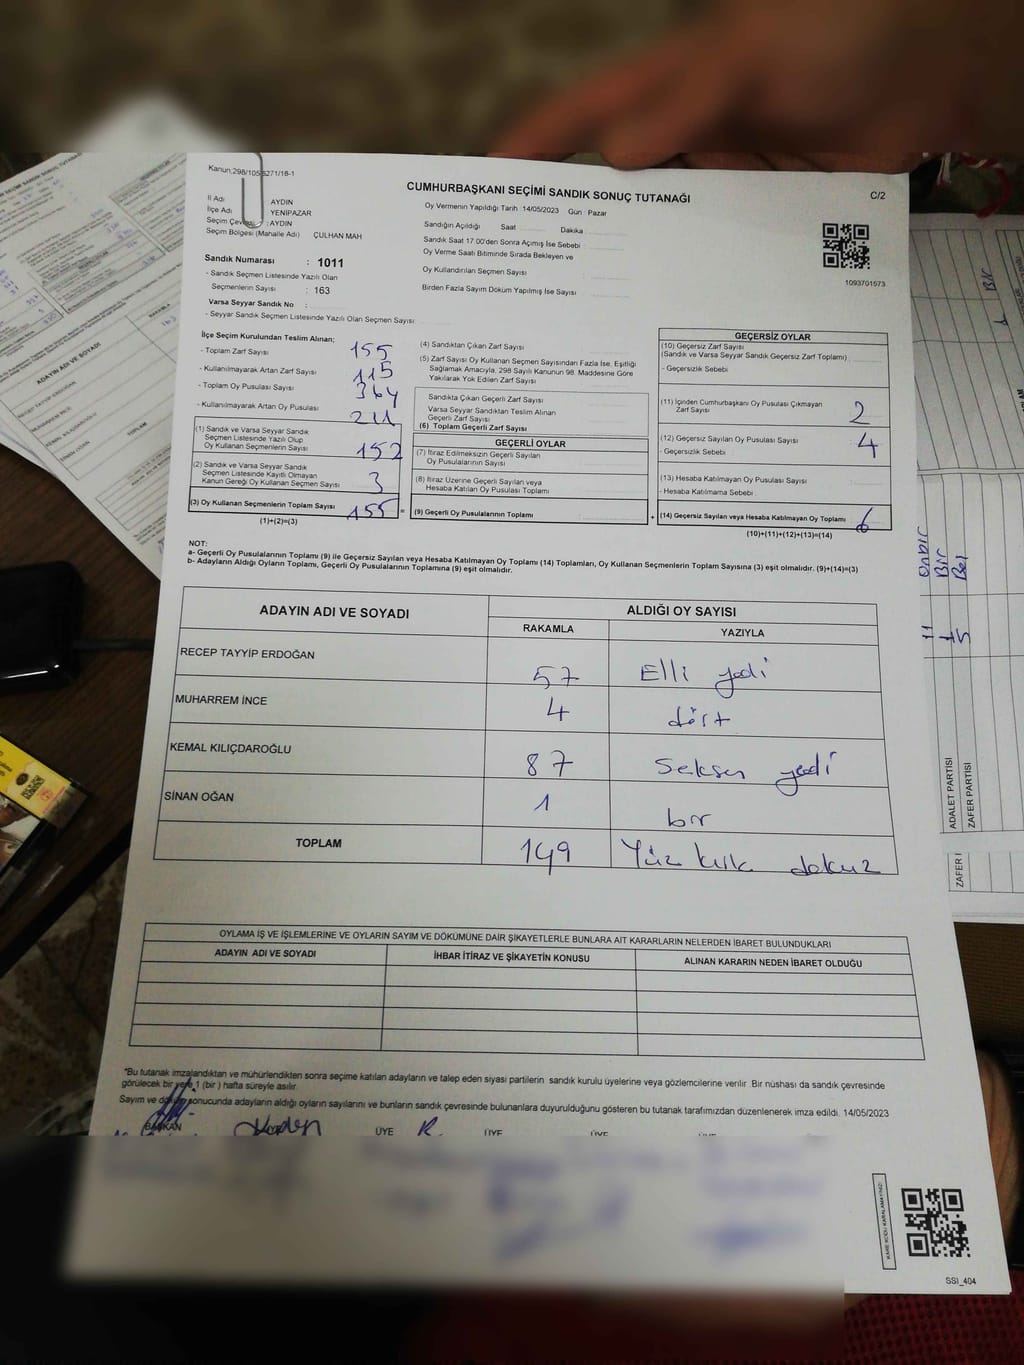 Kanun,298/105 6271/16-1
C/2
CUMHURBAŞKANI SEÇİMİ SANDIK SONUÇ TUTANAĞI
İl Adı AYDIN
İlçe Adı YENİPAZAR
Seçim Çevresi : AYDIN
Seçim Bölgesi (Mahalle Adi) ÇULHAN MAH
Oy Vermenin Yapıldığı Tarih :14/05/2023 Gün : Pazar
Sandığın Açıldığı Saat Dakika
Sandık Saat 17.00'den Sonra Açımış İse Sebebi
Oy Verme Saati Bitiminde Sırada Bekleyen ve
Oy Kullandırılan Seçmen Sayısı
Birden Fazla Sayım Döküm Yapılmış İse Sayısı
1093701573
Sandık Numarası : 1011
- Sandık Seçmen Listesinde Yazılı Olan
Seçmenlerin Sayısı : 163
Varsa Seyyar Sandık No :
- Seyyar Sandık Seçmen Listesinde Yazılı Olan Seçmen Sayısı
İlçe Seçim Kurulundan Teslim Alınan;
- Toplam Zarf Sayısı 155
- Kullanılmayarak Artan Zarf Sayısı 115
- Toplam Oy Pusulası Sayısı 364
- Kullanılmayarak Artan Oy Pusulası 211
(1) Sandık ve Varsa Seyyar Sandık
Seçmen Listesinde Yazılı Olup
Oy Kullanan Seçmenlerin Sayısı 152
(2) Sandık ve Varsa Seyyar Sandık
Seçmen Listesinde Kayıtlı Olmayan
Kanun Gereği Oy Kullanan Seçmen Sayısı 3
(3) Oy Kullanan Seçmenlerin Toplam Sayısı 155
(1)+(2)=(3)
(4) Sandıktan Çıkan Zarf Sayısı
(5) Zarf Sayısı Oy Kullanan Seçmen Sayısından Fazla İse, Eşitliği
Sağlamak Amacıyla, 298 Sayılı Kanunun 98. Maddesine Göre
Yakılarak Yok Edilen Zarf Sayısı
Sandıkta Çıkan Geçerli Zarf Sayısı
Varsa Seyyar Sandıktan Teslim Alınan
Geçerli Zarf Sayısı
(6) Toplam Geçerli Zarf Sayısı
GEÇERLİ OYLAR
(7) İtiraz Edilmeksizin Geçerli Sayılan
Oy Pusulalarının Sayısı
(8) İtiraz Üzerine Geçerli Sayılan veya
Hesaba Katılan Oy Pusulası Toplamı
= (9) Geçerli Oy Pusulalarının Toplamı +
GEÇERSİZ OYLAR
(10) Geçersiz Zarf Sayısı
(Sandık ve Varsa Seyyar Sandık Geçersiz Zarf Toplamı)
- Geçersizlik Sebebi
(11) İçinden Cumhurbaşkanı Oy Pusulası Çıkmayan
Zarf Sayısı 2
(12) Geçersiz Sayılan Oy Pusulası Sayısı 4
- Geçersizlik Sebebi
(13) Hesaba Katılmayan Oy Pusulası Sayısı
- Hesaba Katılmama Sebebi
(14) Geçersiz Sayılan veya Hesaba Katılmayan Oy Toplamı 6
(10)+(11)+(12)+(13)=(14)
NOT:
a- Geçerli Oy Pusulalarının Toplamı (9) ile Geçersiz Sayılan veya Hesaba Katılmayan Oy Toplamı (14) Toplamları, Oy Kullanan Seçmenlerin Toplam Sayısına (3) eşit olmalıdır. (9)+(14)=(3)
b- Adayların Aldığı Oyların Toplamı, Geçerli Oy Pusulalarının Toplamına (9) eşit olmalıdır.
ADAYIN ADI VE SOYADI ALDIĞI OY SAYISI
RAKAMLA YAZIYLA
RECEP TAYYİP ERDOĞAN 57 Elli yedi
MUHARREM İNCE 4 dört
KEMAL KILIÇDAROĞLU 87 Seksen yedi
SİNAN OĞAN 1 bir
TOPLAM 149 Yüz kırk dokuz
OYLAMA İŞ VE İŞLEMLERİNE VE OYLARIN SAYIM VE DÖKÜMÜNE DAİR ŞİKAYETLERLE BUNLARA AİT KARARLARIN NELERDEN İBARET BULUNDUKLARI
ADAYIN ADI VE SOYADI İHBAR İTİRAZ VE ŞİKAYETİN KONUSU ALINAN KARARIN NEDEN İBARET OLDUĞU
*Bu tutanak imzalandıktan ve mühürlendikten sonra seçime katılan adayların ve talep eden siyasi partilerin sandık kurulu üyelerine veya gözlemcilerine verilir. Bir nüshası da sandık çevresinde
görülecek bir yere 1 (bir ) hafta süreyle asılır.
Sayım ve döküm sonucunda adayların aldığı oyların sayılarını ve bunların sandık çevresinde bulunanlara duyurulduğunu gösteren bu tutanak tarafımızdan düzenlenerek imza edildi. 14/05/2023
BAŞKAN ÜYE ÜYE ÜYE
KARE KODU KARALAMAYINIZ!
SSI_404
ADAYIN ADI VE SOYADI
TOPLAM
11 Onbir
1 Bir
5 Beş
ADALET PARTİSİ
ZAFER PARTİSİ